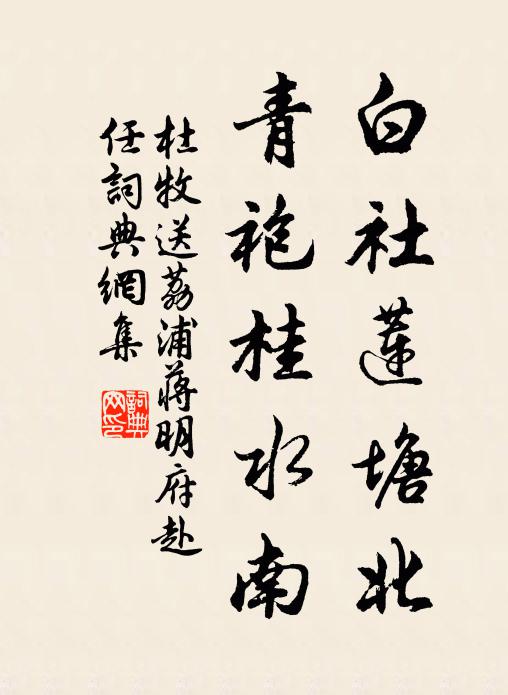 白社蓮塘北
青袍桂水南
杜牧送荔浦蔣明府赴
任詞典網集
詞典
网印